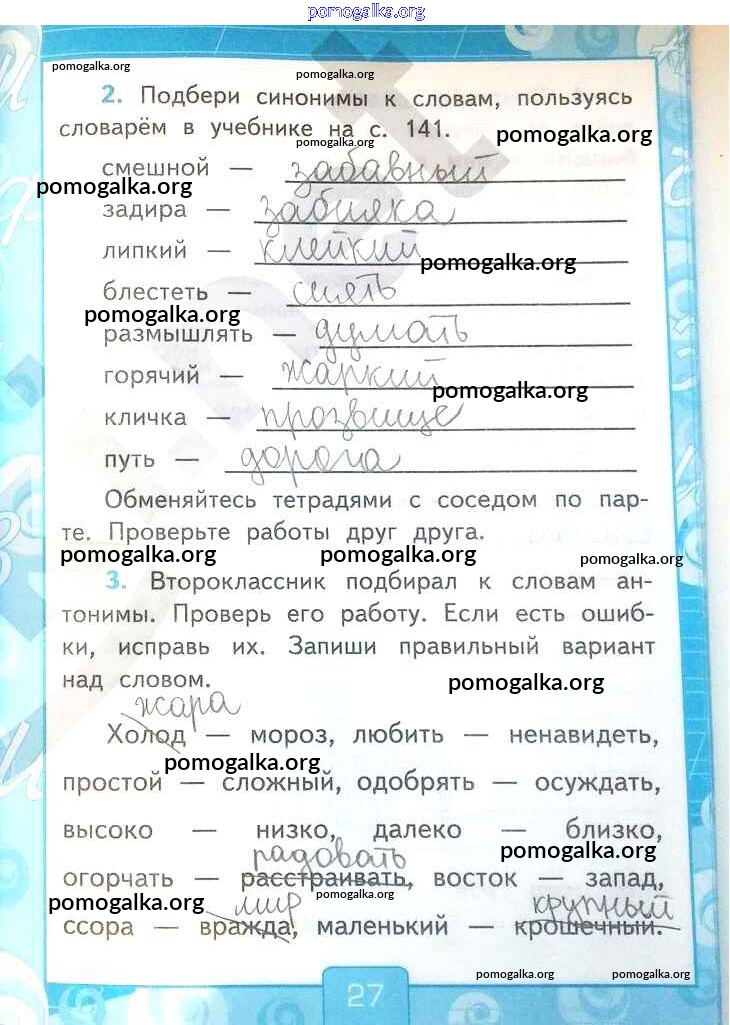 pomogalka.org
pomogalka.org
pomogalka.org
2. Подбери синонимы к словам, пользуясь
словарём в учебнике на с. 141.
pomogalka.org
смешной — забавный
pomogalka.org
задира — забияка
липкий — клейкий
pomogalka.org
блестеть — сиять
pomogalka.org
размышлять — думать
горячий — жаркий
pomogalka.org
кличка — прозвище
путь — дорога
Обменяйтесь тетрадями с соседом по пар-
те. Проверьте работы друг друга.
pomogalka.org pomogalka.org pomogalka.org
3. Второклассник подбирал к словам ан-
тонимы. Проверь его работу. Если есть ошиб-
ки, исправь их. Запиши правильный вариант
над словом.
pomogalka.org
жара
Холод — мороз, любить — ненавидеть,
pomogalka.org
простой — сложный, одобрять — осуждать,
высоко — низко, далеко — близко,
радовать
pomogalka.org
огорчать — расстраивать, восток — запад,
pomogalka.org
pomogalka.org мир крупный
ссора — вражда, маленький — крошечный.
pomogalka.org pomogalka.org
27